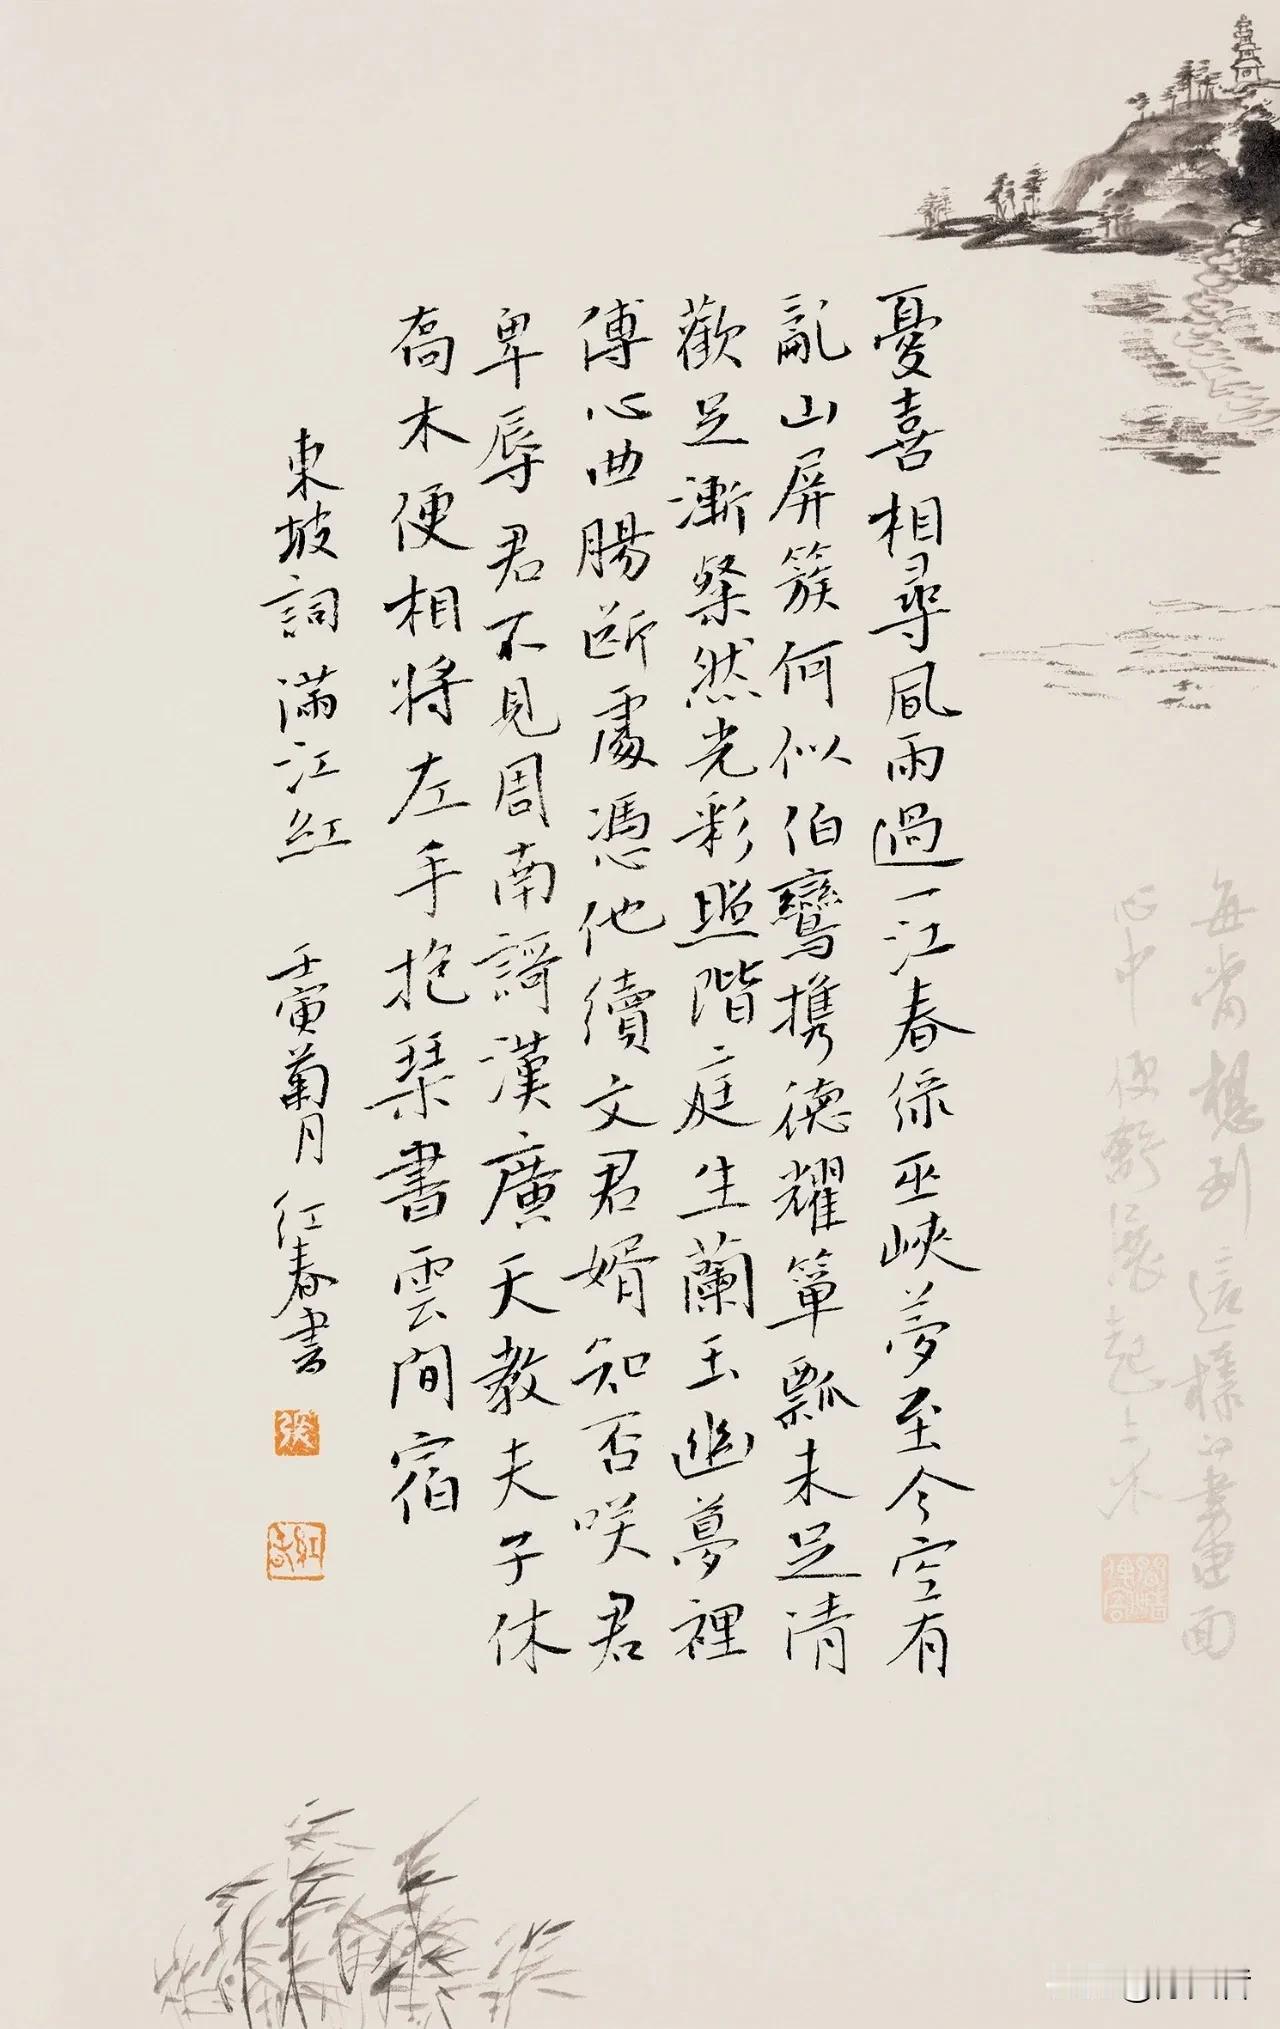 憂喜相尋風雨過一江春綠巫峽夢至今空有
亂山屏簇何似伯鸞攜德耀簞瓢未足清
歡足漸粲然光彩照階庭生蘭玉幽夢裡
傳心曲腸斷處憑他續文君婿知否咲君
卑辱君不見周南謌漢廣天教夫子休
喬木便相將左手抱琹書雲間宿
東坡詞滿江紅 壬寅菊月 紅春書
張
每當想到這樣一畫面
心中便舒展起上来